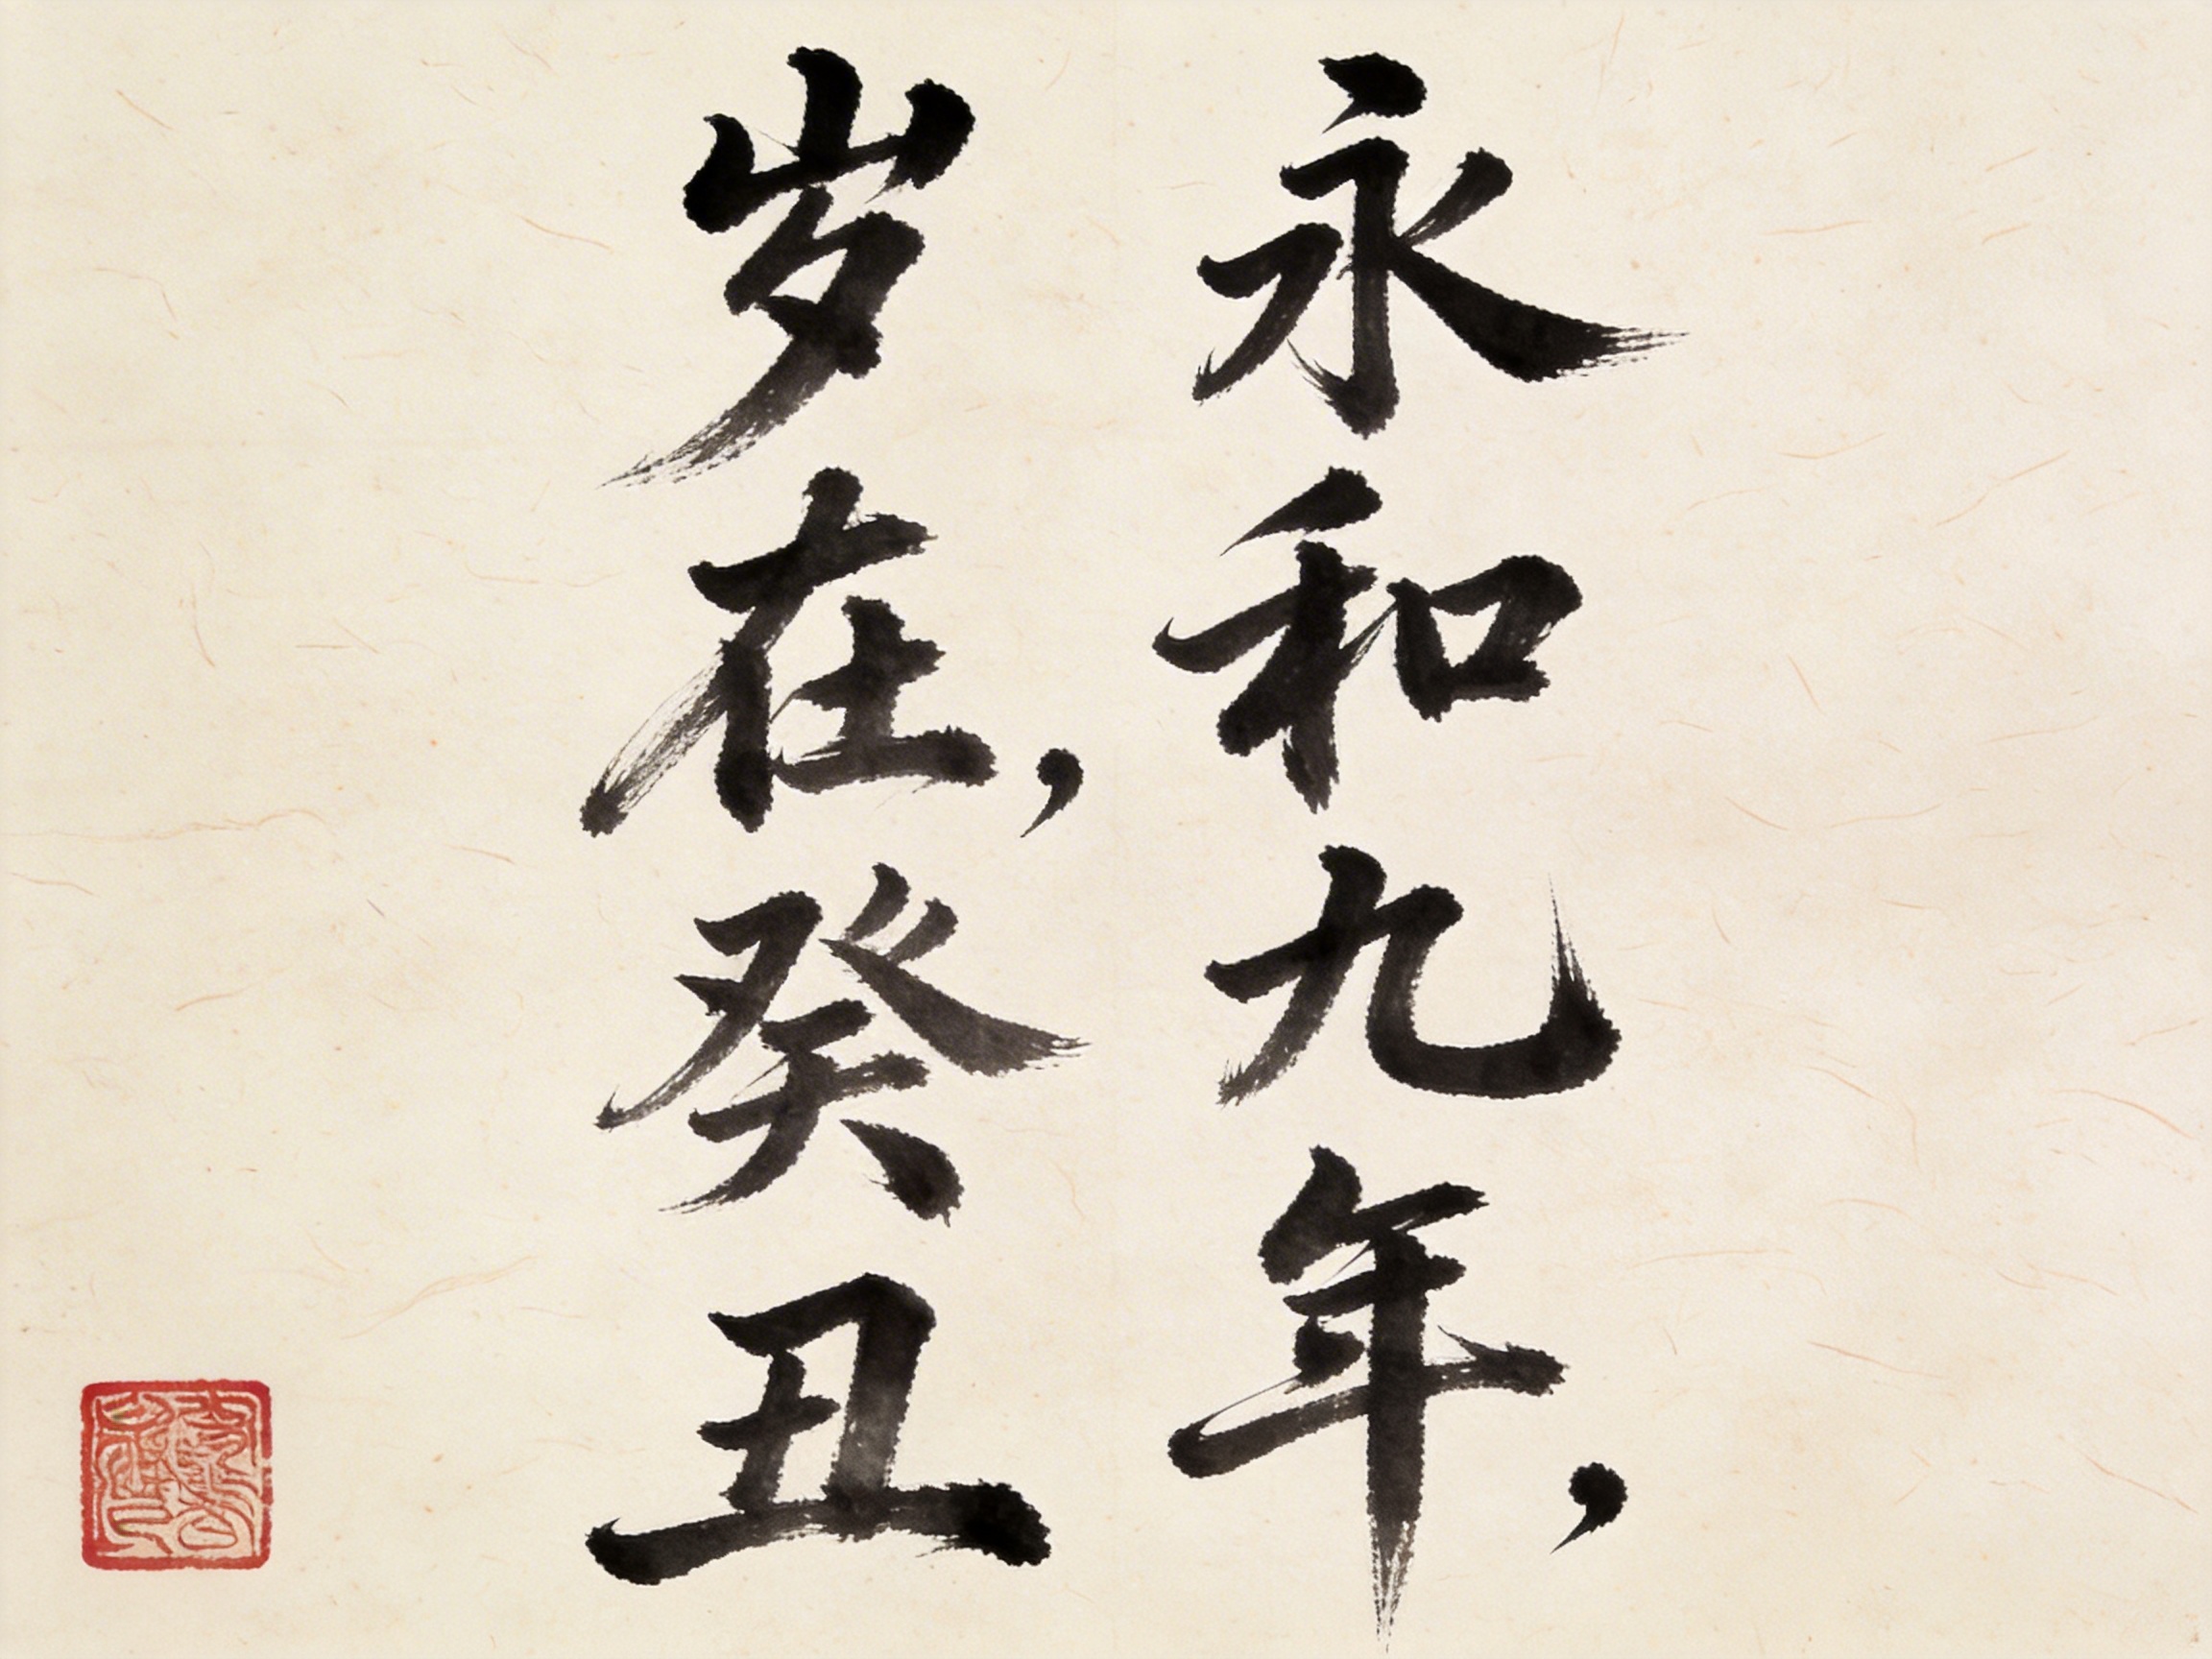 永和九年，
岁在，癸丑